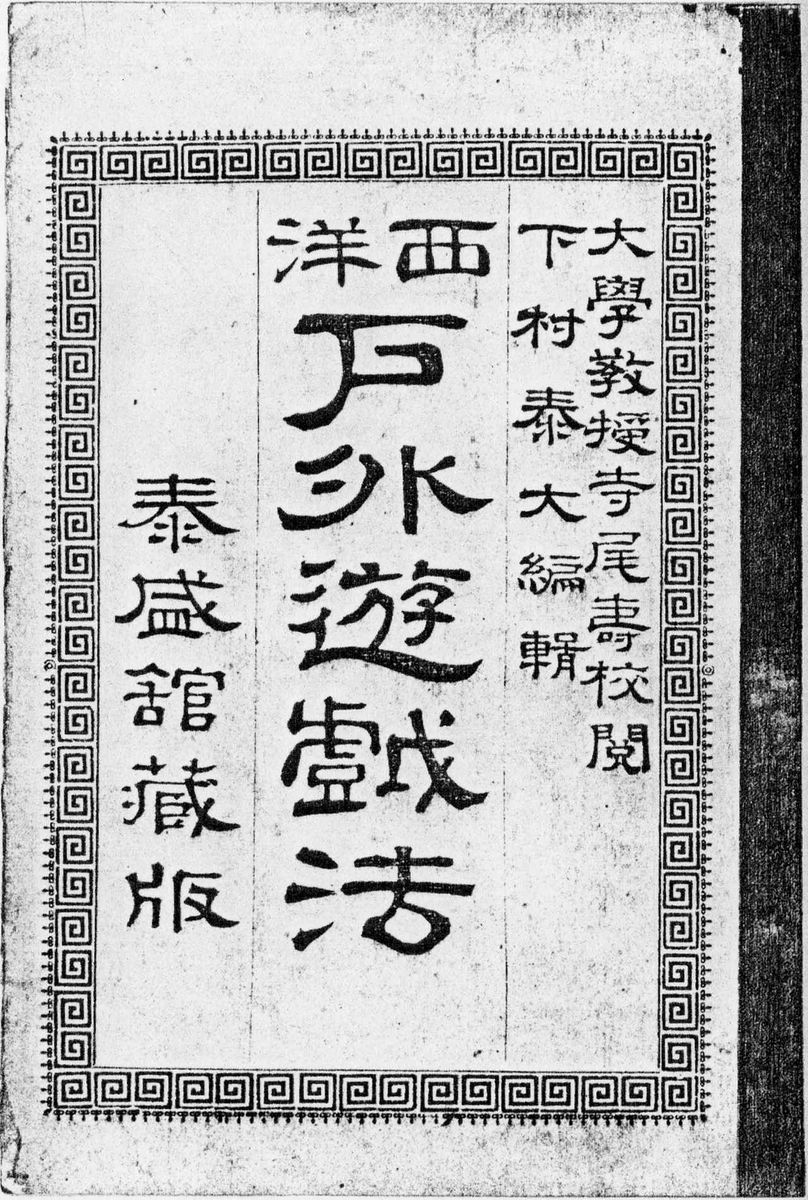 大學敎授寺尾壽校閱
下村泰大編輯
西洋
戶外遊戲法
泰盛館藏版